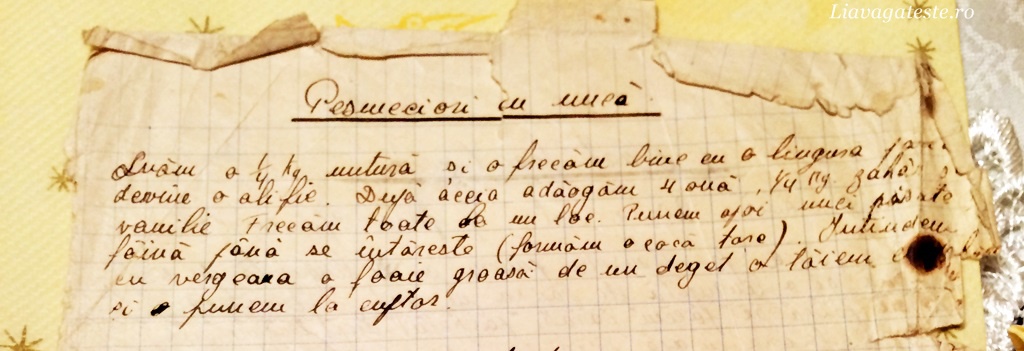 Liavagateste.ro
Pesmeciori cu nucă
Luăm o 1/4 kg untură si o frecăm bine cu o lingura pană
devine o alifie. După aceia adăogăm 4 ouă, 1/4 kg. zahăr
vanilie Frecăm toate la un loc. Punem apoi nuci pisate
făină până se întăreste (formăm o cocă tare). Intindem
cu vergeaua o foaie groasă de un deget o tăiem
si o punem la cuptor.